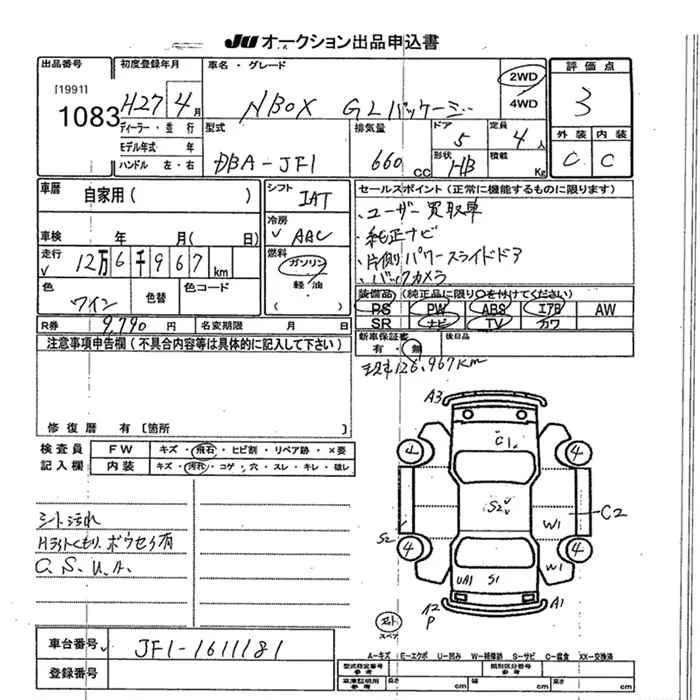 JU オークション出品申込書
出品番号
[1991]
1083
初度登録年月
H27 4月
ディーラー・並行
モデル年式 年
ハンドル 左・右
車名・グレード
NBOX GLパッケージ
2WD
4WD
評価点
3
外装 内装
C C
型式
DBA-JF1
排気量
660 CC
ドア
5
定員
4人
形状
HB
積載
Kg
車歴
自家用( )
車検 年 月( 日)
走行
√ 12万6千967 km
色
ワイン
色替
色コード
シフト
IAT
冷房
√ AAC
燃料
ガソリン
軽・油
セールスポイント(正常に機能するものに限ります)
・ユーザー買取車
・純正ナビ
・片側パワースライドドア
・バックカメラ
装備品 (純正品に限り○を付けてください)
PS PW ABS エアB AW
SR ナビ TV カワ
R券 9,790 円 名変期限 月 日
新車保証書
有・無
後日品
注意事項申告欄(不具合内容等は具体的に記入して下さい)
126,967km
修復歴 有〔箇所 〕
検査員
記入欄
FW キズ・飛石・ヒビ割・リペア跡・×要
内装 キズ・汚れ・コゲ・穴・スレ・キレ・破レ
シート汚れ
Hライトくもり、ボウセイ有
C.S.U.A.
A3
C1
4 4
S2
W1
C2
S2
4 4
W1
UA1 S1
A2
P
A1
スペア
車台番号 JF1-1611181
登録番号
A-キズ E-エクボ U-凹み W-補修跡 S-サビ C-腐食 XX-交換済
型式指定番号
参考
類別区分番号
参考
車庫証明用
参考
長さ cm 幅 cm 高さ cm